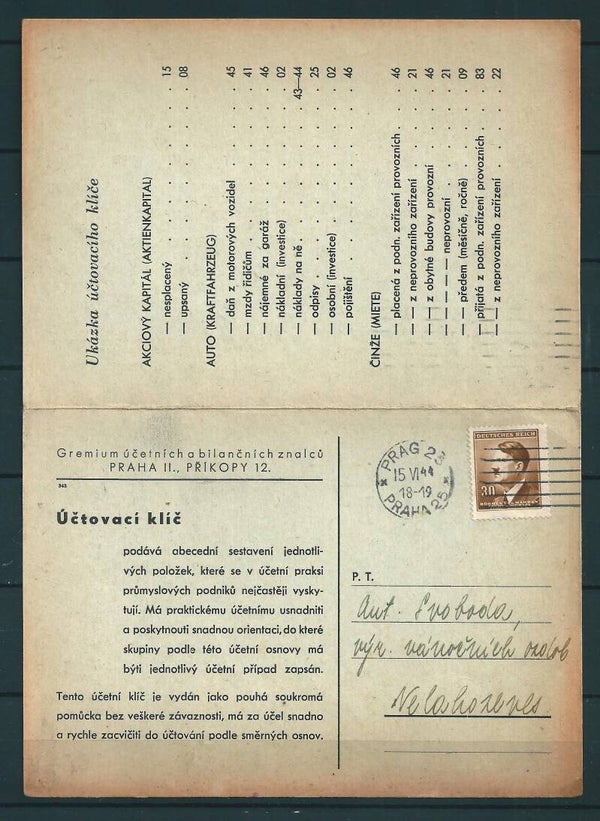 Ukázka účtovacího klíče
AKCIOVÝ KAPITÁL (AKTIENKAPITAL)
— nesplacený . . . . . . . . 15
— upsaný . . . . . . . . 08
AUTO (KRAFTFAHRZEUG)
— daň z motorových vozidel . . . . . 45
— mzdy řidičům . . . . . . . 41
— nájemné za garáž . . . . . . 46
— nákladní (investice) . . . . . . 02
— náklady na ně . . . . . . 43—44
— odpisy . . . . . . . . 25
— osobní (investice) . . . . . . 02
— pojištění . . . . . . . . 46
ČINŽE (MIETE)
— placená z podn. zařízení provozních . . 46
— — z neprovozního zařízení . . . . 21
— — z obytné budovy provozní . . . 46
— — — — neprovozní . . . . 21
— — předem (měsíčně, ročně) . . . 09
— přijatá z podn. zařízení provozních . . 83
— — z neprovozního zařízení . . . . 22
Gremium účetních a bilančních znalců
PRAHA II., PŘÍKOPY 12.
343
Účtovací klíč
podává abecední sestavení jednotli-
vých položek, které se v účetní praksi
průmyslových podniků nejčastěji vysky-
tují. Má praktickému účetnímu usnadniti
a poskytnouti snadnou orientaci, do které
skupiny podle této účetní osnovy má
býti jednotlivý účetní případ zapsán.
Tento účetní klíč je vydán jako pouhá soukromá
pomůcka bez veškeré závaznosti, má za účel snadno
a rychle zacvičiti do účtování podle směrných osnov.
PRAG 25
15 VI 44
18-19
PRAHA 25
DEUTSCHES REICH
30
P. T.
Ant. Svoboda,
výr. vánočních ozdob
Nelahozeves